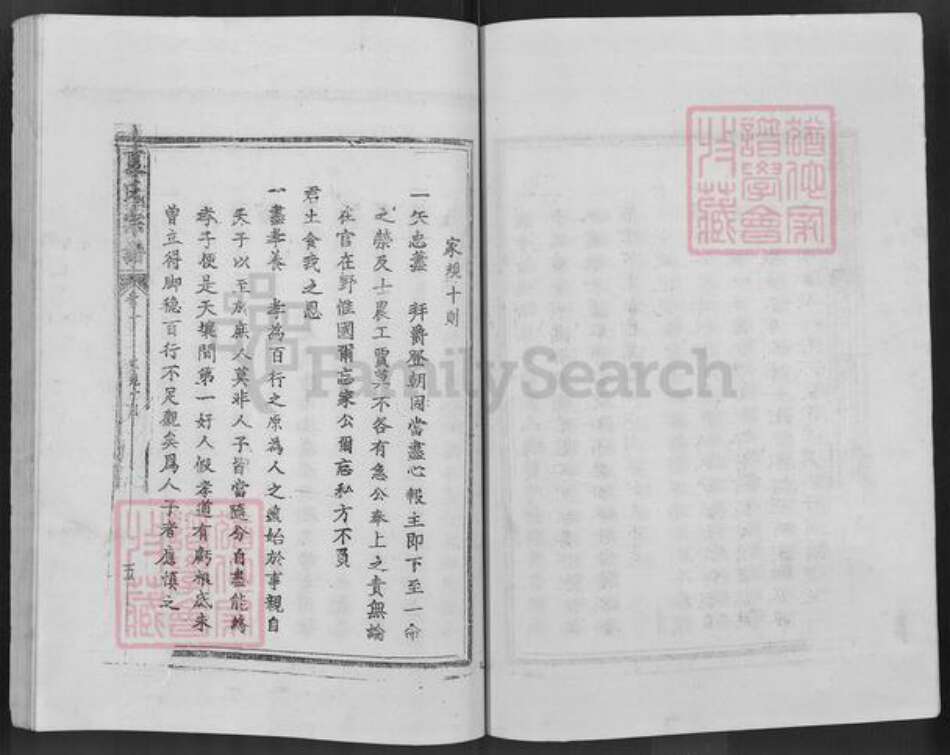 家規十則
一矢忠藎 拜爵登朝固當盡心報主即下至一命
之榮及士農工賈莫不各有急公奉上之責無論
在官在野惟國爾忘家公爾忘私方不負
君土食我之恩
一盡孝養 孝為百行之原為人之 始於事親自
天子以至於庶人莫非人子皆當隨分自盡能為
孝子便是天壤間第一好人假孝道有虧根底未
曾立得脚穩百行不足觀矣爲人子者應慎之
夏氏宗譜
卷一
五
FamilySearch
譜學會
收藏
收藏